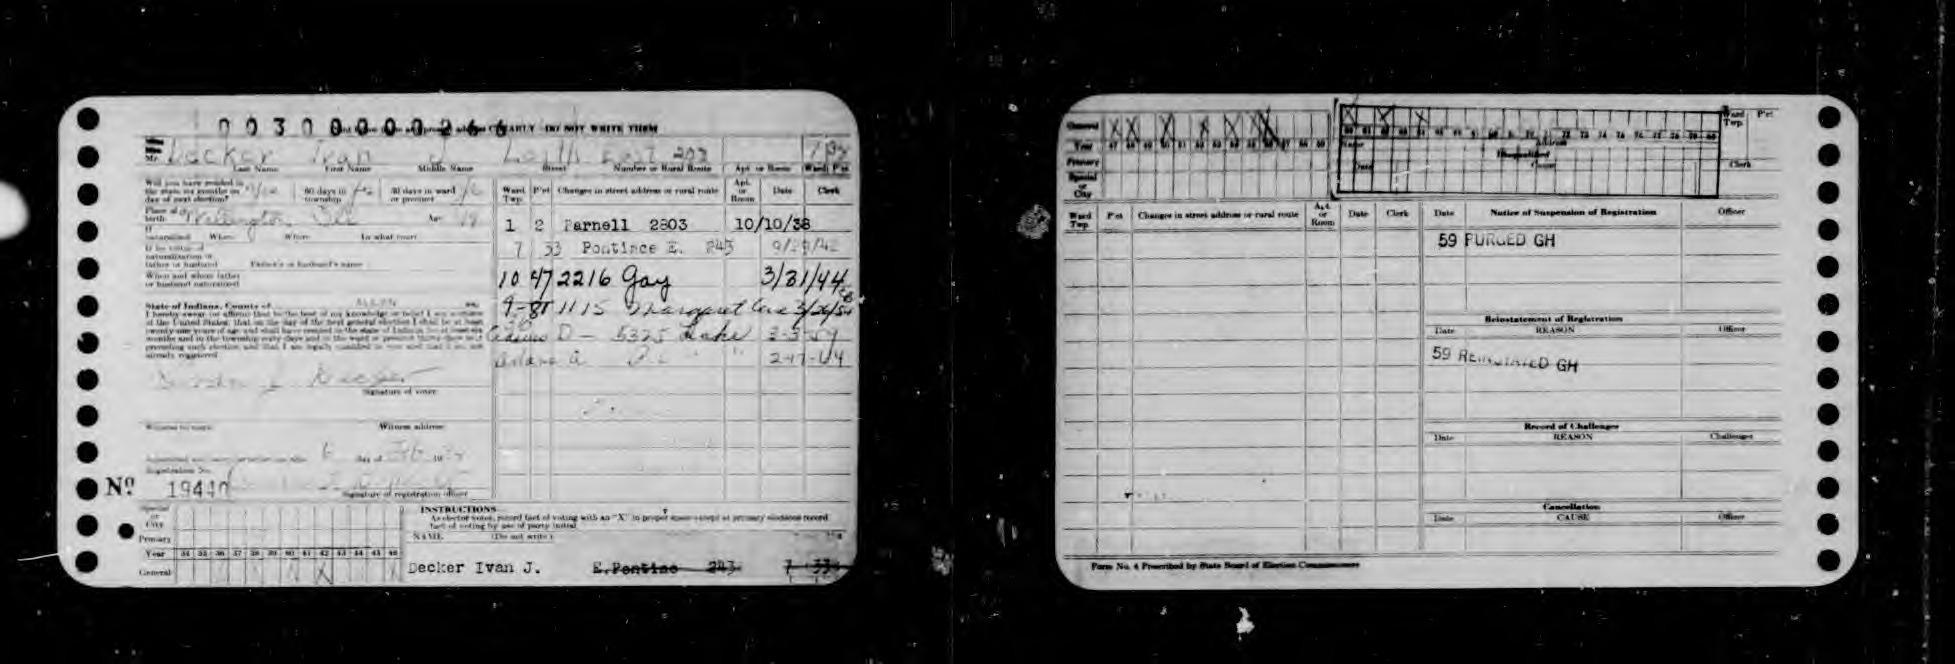 0030000026
CLEARLY - DO NOT WRITE THEM
Mr. Decker Ivan J Leith East 203
Last Name First Name Middle Name Street Number or Rural Route Apt. or Room Ward P'ct
Will you have resided in
the state six months on 60 days in 30 days in ward
day of next election? township or precinct
Place of
birth Wellington Ill Age
If
naturalized When Where In what court
If by virtue of
naturalization of
father or husband Father's or husband's name
When and where father
or husband naturalized
State of Indiana, County of ALLEN ss:
I hereby swear (or affirm) that to the best of my knowledge or belief I am a citizen
of the United States; that on the day of the next general election I shall be at least
twenty-one years of age and shall have resided in the state of Indiana, for at least six
months and in the township sixty days and in the ward or precinct thirty days next
preceding such election and that I am legally qualified to vote and that I am not
already registered
Signature of voter
Witness to mark Witness address
6 day of
Registration No.
Nº 19440
Signature of registration officer
Ward Twp. P'ct Changes in street address or rural route Apt. or Room Date Clerk
1 2 Parnell 2803 10/10/38
7 33 Pontiace E. 245 9/29/42
10 47 2216 Gay 3/31/44
9-81 1115 Margaret Ave 3/26/54
Adams D - 5325 Lake 3-3-59
Adams A " " 2-17-64
Special
or
City
Primary
Year 34 35 36 37 38 39 40 41 42 43 44 45 46
General
INSTRUCTIONS
As elector votes, record fact of voting with an "X" in proper space except at primary elections record
fact of voting by use of party initial
NAME (Do not write)
Decker Ivan J. E.Pontiac 243 7 33
General
Year 47 48 49 50 51 52 53 54 55 56 57 58 59
Primary
Special
or
City
Ward
Twp. P'ct
Name Address
Disqualified
Date Cause Clerk
Ward Twp. P'ct Changes in street address or rural route Apt. or Room Date Clerk
Date Notice of Suspension of Registration Officer
59 PURGED GH
Reinstatement of Registration
Date REASON Officer
59 REINSTATED GH
Record of Challenges
Date REASON Challenger
Cancellation
Date CAUSE Officer
Form No. 4 Prescribed by State Board of Election Commissioners